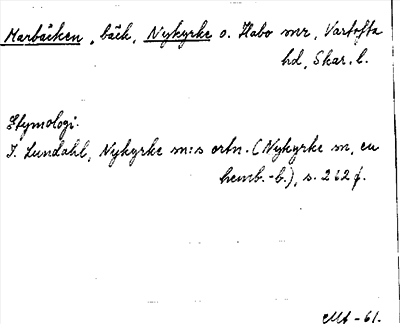 Marbäcken, bäck, Nykyrke o. Habo snr, Vartofta
hd, Skar. l.
Etymologi.
I. Lundahl, Nykyrke sn:s ortn. (Nykyrke sn, en
hemb.-b.), s. 262 f.
-61.